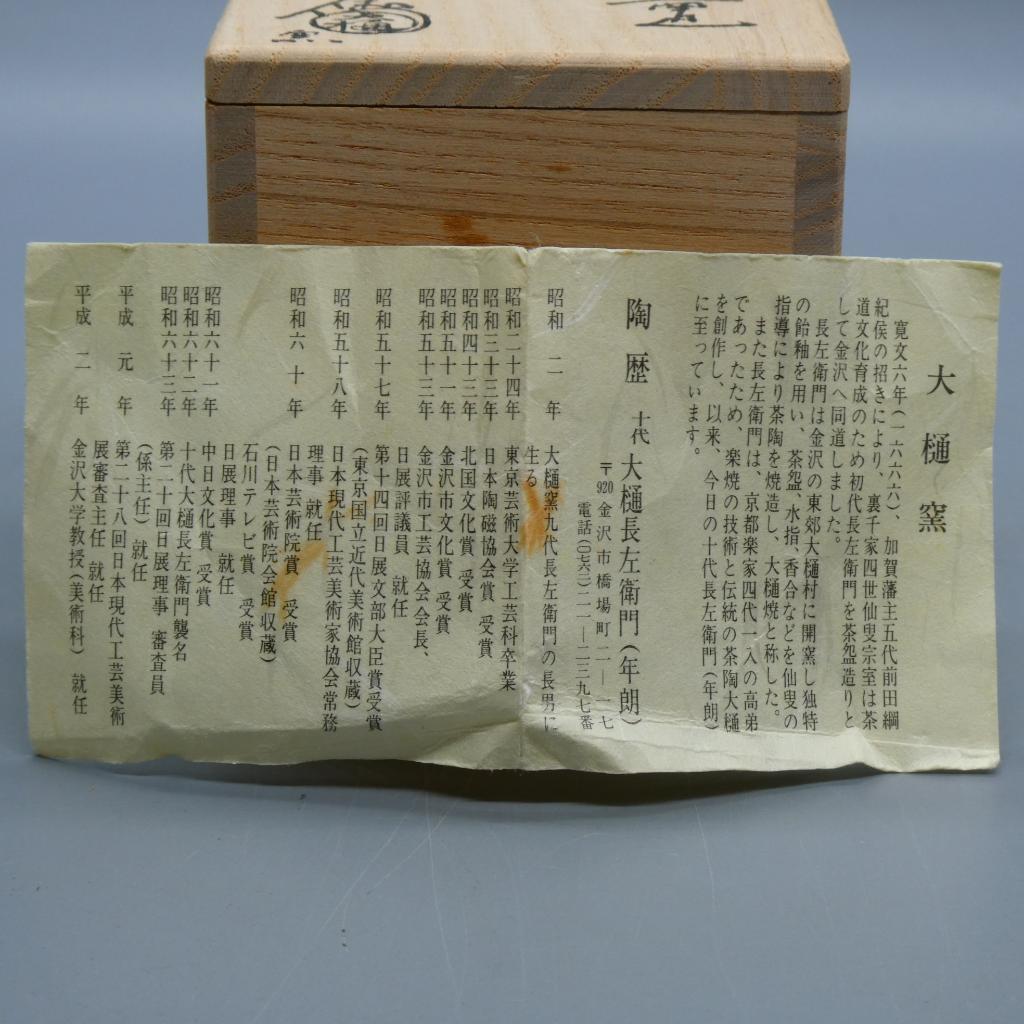 大樋窯
寛文六年(一六六六)、加賀藩主五代前田綱
紀侯の招きにより、裏千家四世仙叟宗室は茶
道文化育成のため初代長左衛門を茶盌造りと
して金沢へ同道しました。
長左衛門は金沢の東郊大樋村に開窯し独特
の飴釉を用い、茶盌、水指、香合などを仙叟の
指導により茶陶を焼造し、大樋焼と称した。
また長左衛門は、京都楽家四代一入の高弟
であったため、楽焼の技術と伝統の茶陶大樋
を創作し、以来、今日の十代長左衛門(年朗)
に至っています。
陶歴 十代 大樋長左衛門(年朗)
〒920 金沢市橋場町二―一七
電話(〇七六二)二一―二三九七番
昭和 二 年 大樋窯九代長左衛門の長男に
生る
昭和二十四年 東京芸術大学工芸科卒業
昭和三十三年 日本陶磁協会賞 受賞
昭和四十三年 北国文化賞 受賞
昭和五十一年 金沢市文化賞 受賞
昭和五十三年 金沢市工芸協会会長、
日展評議員 就任
昭和五十七年 第十四回日展文部大臣賞受賞
(東京国立近代美術館収蔵)
昭和五十八年 日本現代工芸美術家協会常務
理事 就任
昭和六十年 日本芸術院賞 受賞
(日本芸術院会館収蔵)
石川テレビ賞 受賞
日展理事 就任
昭和六十一年 中日文化賞 受賞
昭和六十二年 十代大樋長左衛門襲名
昭和六十三年 第二十回日展理事 審査員
(係主任) 就任
平成 元 年 第二十八回日本現代工芸美術
展審査主任 就任
平成 二 年 金沢大学教授(美術科) 就任